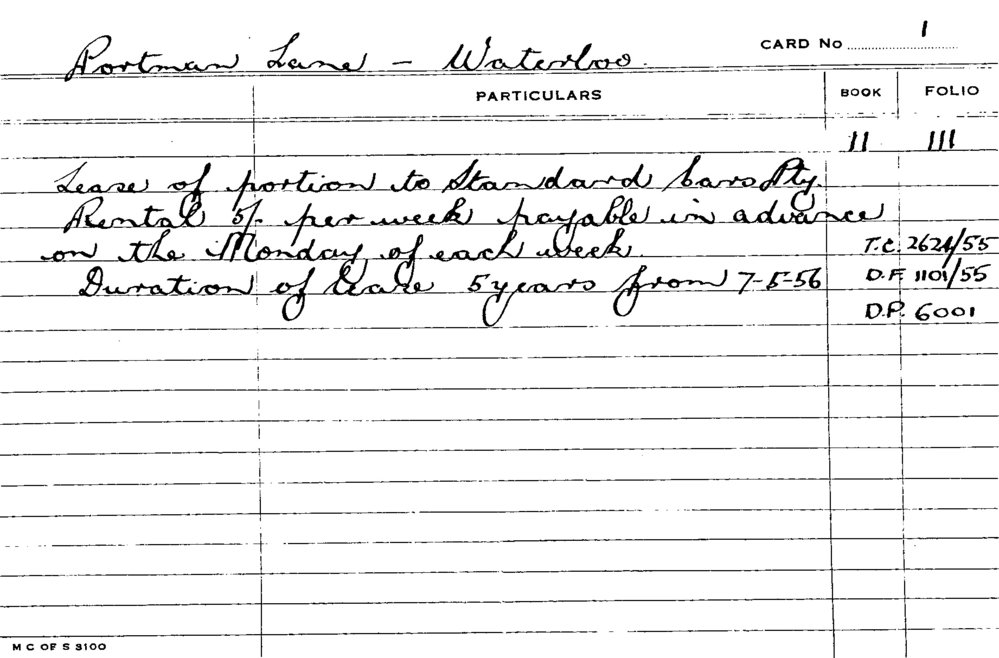 Portman Lane - Waterloo. CARD No 1
PARTICULARS BOOK FOLIO
11 111
Lease of portion to Standard Cars Pty.
Rental 5/- per week payable in advance
on the Monday of each week. T.C. 2624/55
Duration of lease 5 years from 7-5-56 D.F. 1101/55
D.P. 6001
M C OF S 3100